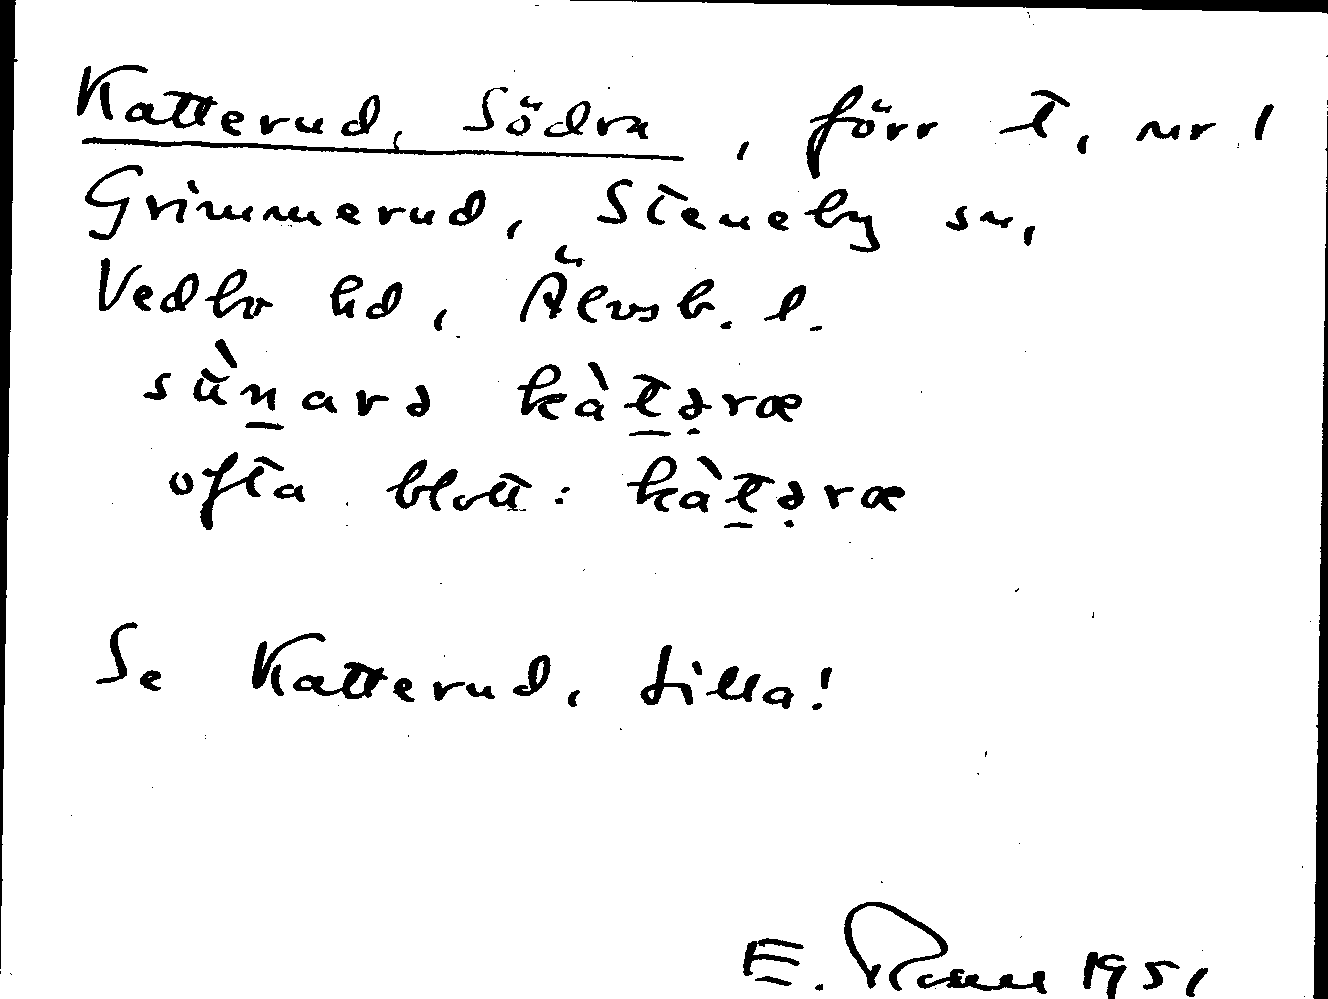 Katterud, Södra, förr t, nr 1
Grimmerud, Steneby sn,
Vedbo hd, Älvsb. l.
sǜn̲arə kàt̲ə̣ræ
ofta blott: kàt̲ə̣ræ
Se Katterud, Lilla!
E. 1951